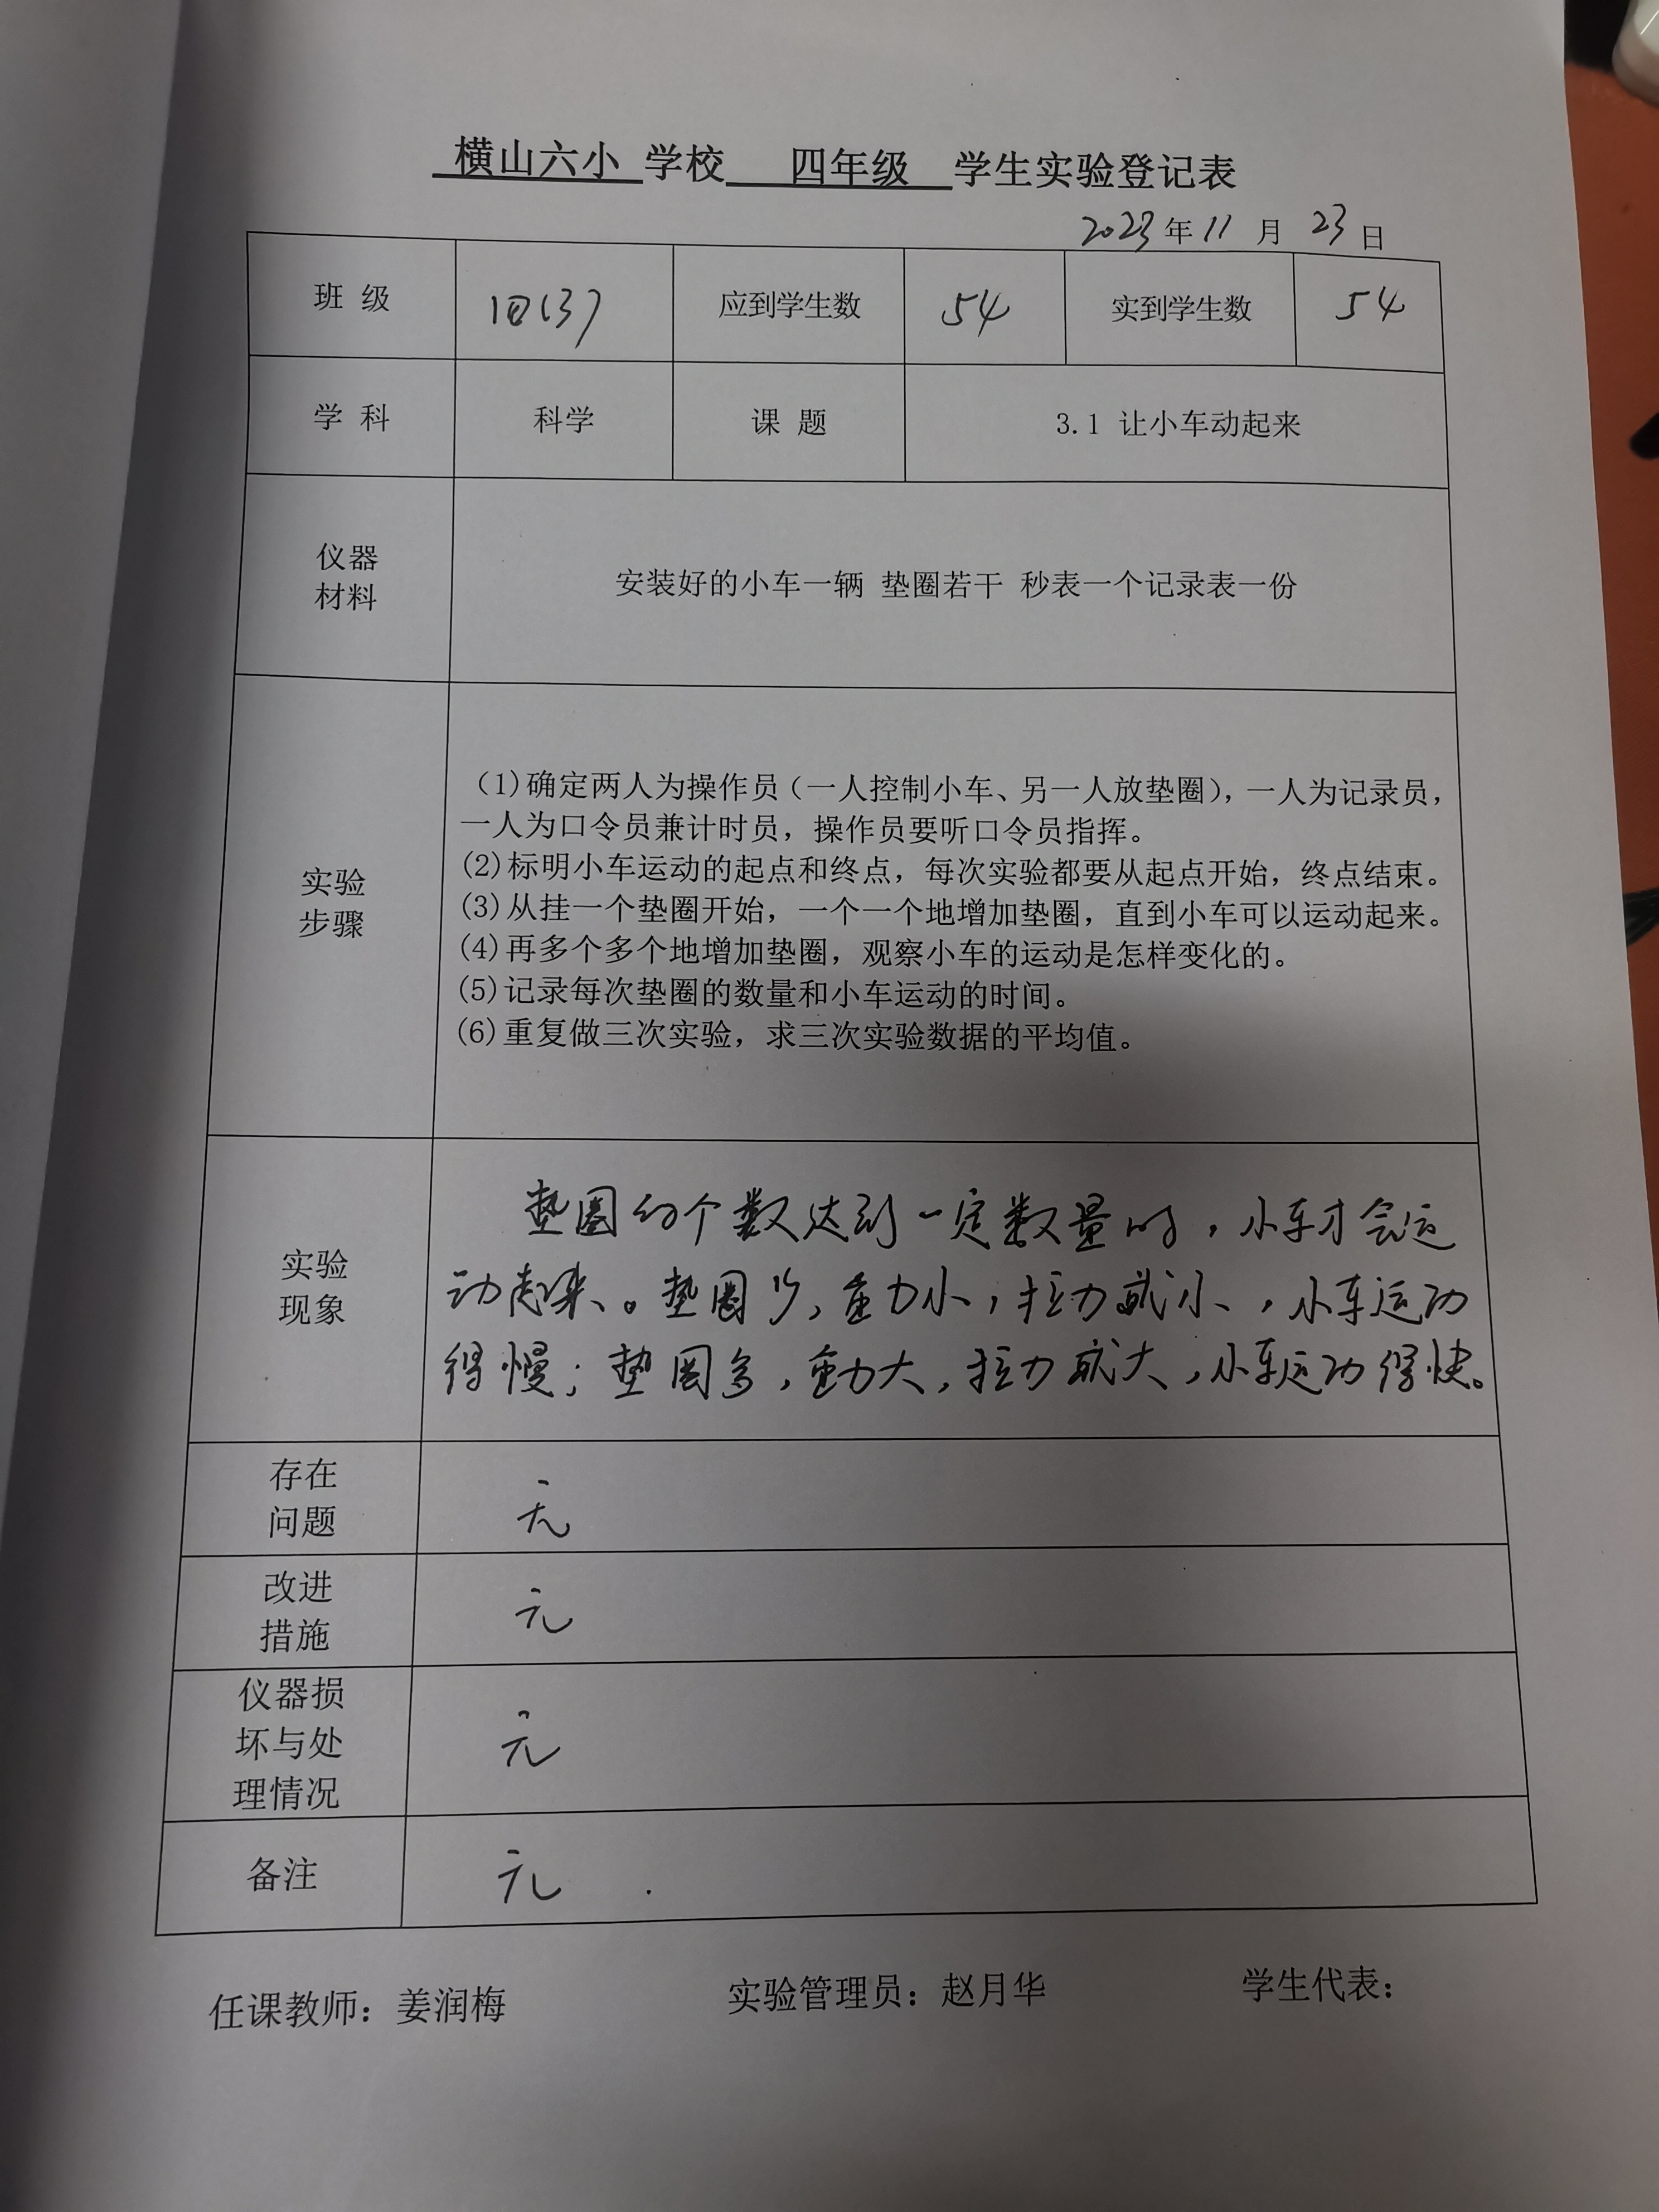 横山六小 学校 四年级 学生实验登记表
2023年11月23日
班 级 四(3) 应到学生数 54 实到学生数 54
学 科 科学 课 题 3.1 让小车动起来
仪器
材料
安装好的小车一辆 垫圈若干 秒表一个记录表一份
实验
步骤
(1)确定两人为操作员(一人控制小车、另一人放垫圈),一人为记录员,
一人为口令员兼计时员,操作员要听口令员指挥。
(2)标明小车运动的起点和终点,每次实验都要从起点开始,终点结束。
(3)从挂一个垫圈开始,一个一个地增加垫圈,直到小车可以运动起来。
(4)再多个多个地增加垫圈,观察小车的运动是怎样变化的。
(5)记录每次垫圈的数量和小车运动的时间。
(6)重复做三次实验,求三次实验数据的平均值。
实验
现象
垫圈的个数达到一定数量时,小车才会运
动起来。垫圈少,重力小,拉力就小,小车运动
得慢;垫圈多,重力大,拉力就大,小车运动得快。
存在
问题
无
改进
措施
无
仪器损
坏与处
理情况
无
备注 无
任课教师:姜润梅 实验管理员:赵月华 学生代表: